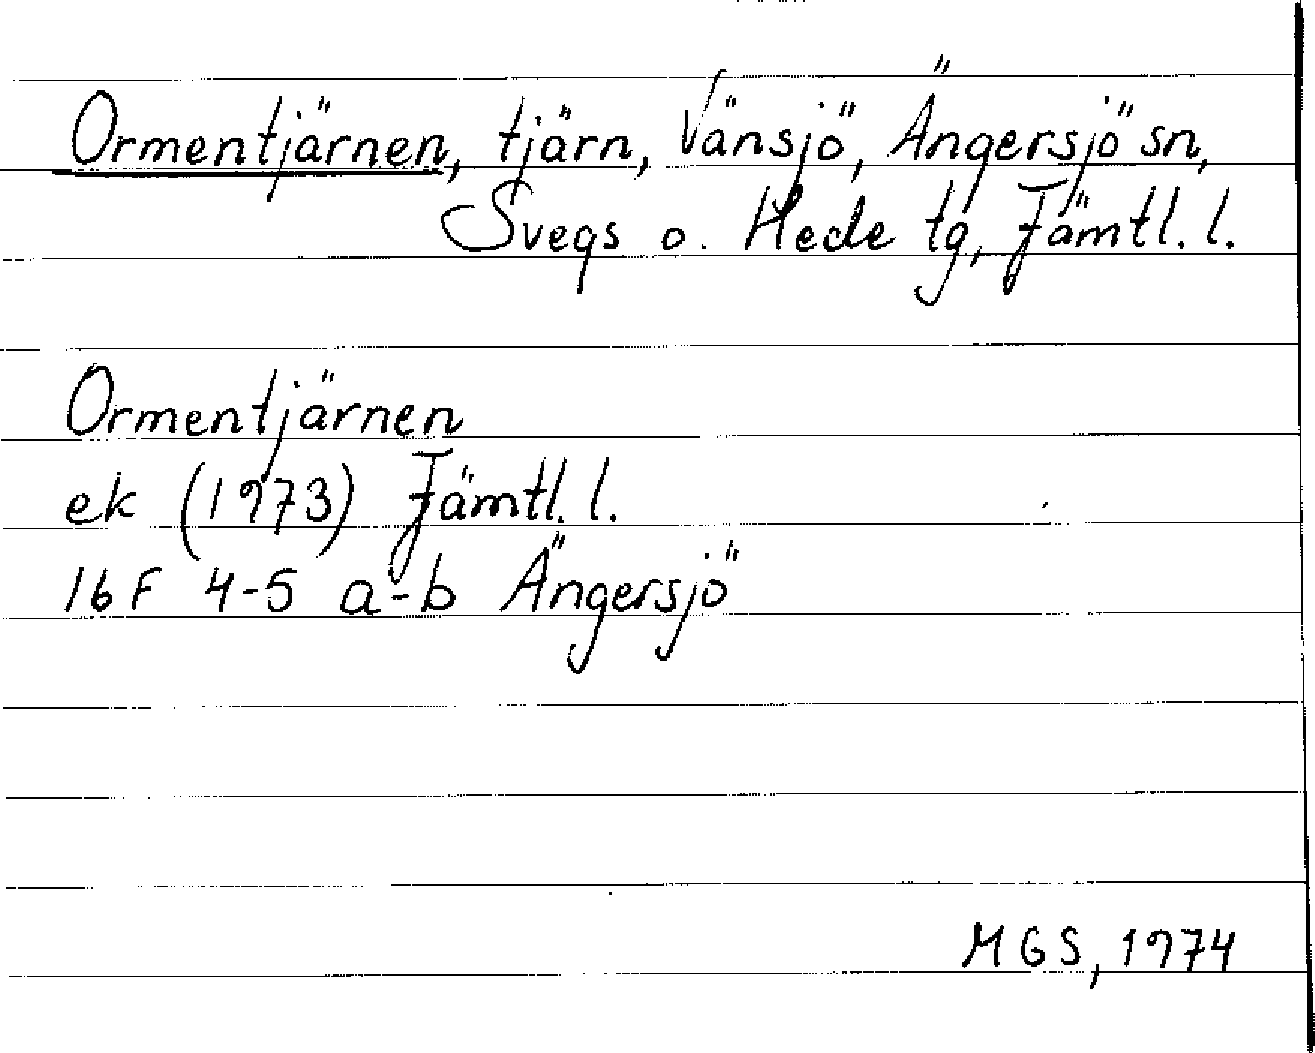 Ormentjärnen, tjärn, Vänsjö, Ängersjö sn,
Svegs o. Hede tg, Jämtl. l.
Ormentjärnen
ek (1973) Jämtl. l.
16F 4-5 a-b Ängersjö
MGS, 1974